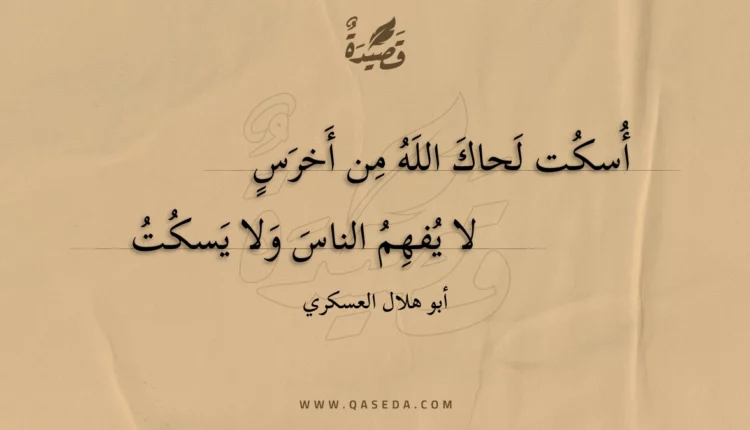 قَصِيدَةٌ
أُسكُت لَحاكَ اللَهُ مِن أَخرَسٍ
لا يُفهِمُ الناسَ وَلا يَسكُتُ
أبو هلال العسكري
WWW.QASEDA.COM